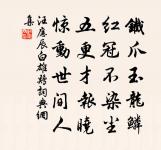 鐵爪玉龍鱗
紅冠不染塵
五更才報曉
惊動世間人
汪應辰白雄鷄詞典網
集